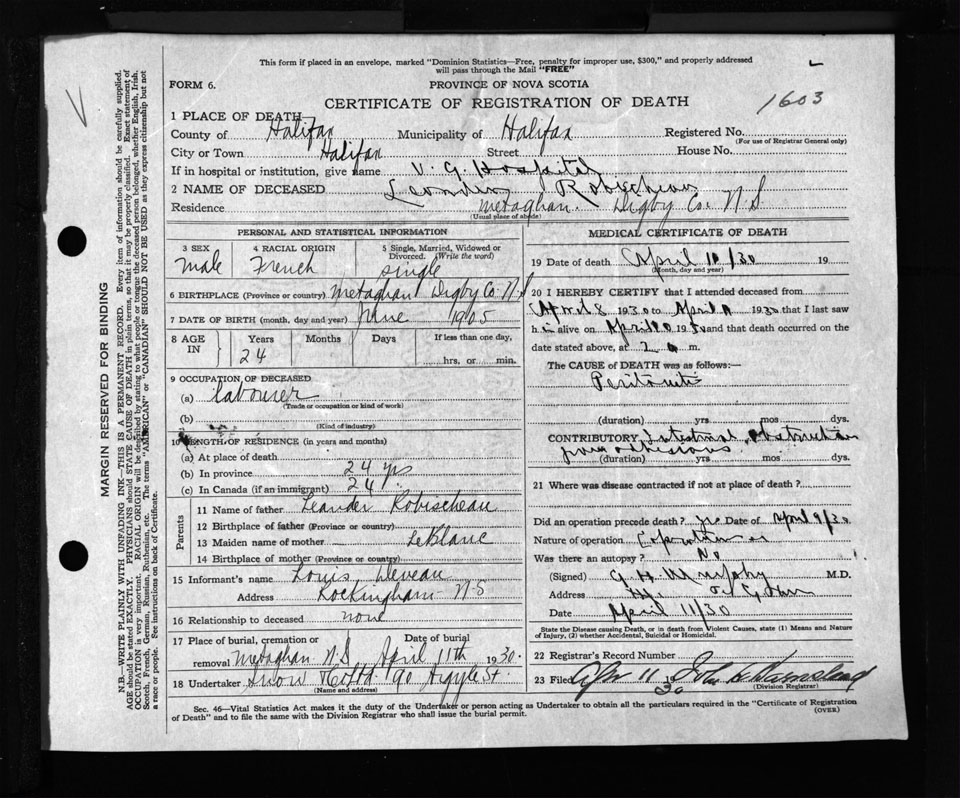 This form if placed in an envelope, marked "Dominion Statistics—Free, penalty for improper use, $300," and properly addressed
will pass through the Mail "FREE"
FORM 6.
PROVINCE OF NOVA SCOTIA
CERTIFICATE OF REGISTRATION OF DEATH
1603
1 PLACE OF DEATH
County of Halifax Municipality of Halifax Registered No.
(For use of Registrar General only)
City or Town Halifax Street House No.
If in hospital or institution, give name V. G. Hospital
2 NAME OF DECEASED Leander Robischeau
Residence Metaghan Digby Co. N S
(Usual place of abode)
PERSONAL AND STATISTICAL INFORMATION
3 SEX 4 RACIAL ORIGIN 5 Single, Married, Widowed or
Divorced. (Write the word)
male French single
6 BIRTHPLACE (Province or country) Metaghan Digby Co. N S
7 DATE OF BIRTH (month, day and year) June 1905
8 AGE IN Years Months Days If less than one day,
24 hrs. or min.
9 OCCUPATION OF DECEASED
(a) Labourer
(Trade or occupation or kind of work)
(b)
(Kind of industry)
10 LENGTH OF RESIDENCE (in years and months)
(a) At place of death
(b) In province 24 yrs
(c) In Canada (if an immigrant) 24
Parents
11 Name of father Leander Robischeau
12 Birthplace of father (Province or country)
13 Maiden name of mother — LeBlanc
14 Birthplace of mother (Province or country)
15 Informant's name Louis Deveau
Address Rockingham N S
16 Relationship to deceased none
17 Place of burial, cremation or removal Metaghan N.S Date of burial April 11th 1930.
18 Undertaker Snow & Co Ltd. 90 Argyle St.
(Name and address)
MEDICAL CERTIFICATE OF DEATH
19 Date of death April 10/30 19
(Month, day and year)
20 I HEREBY CERTIFY that I attended deceased from
April 8 1930 to April 1930 that I last saw
h alive on April 10 19 and that death occurred on
date stated above, at 2 a m.
The CAUSE of DEATH was as follows:—
Peritonitis
(duration) yrs mos dys.
CONTRIBUTORY Intestinal obstruction
from adhesions
(duration) yrs mos dys.
21 Where was disease contracted if not at place of death?
Did an operation precede death? yes Date of April 9/30
Nature of operation
Was there an autopsy? No
(Signed) G. H. Murphy M.D.
Address
Date April 11/30
State the Disease causing Death, or in death from Violent Causes, state (1) Means and Nature
of Injury, (2) whether Accidental, Suicidal or Homicidal.
22 Registrar's Record Number
23 Filed Apr 11 30
(Division Registrar)
Sec. 46—Vital Statistics Act makes it the duty of the Undertaker or person acting as Undertaker to obtain all the particulars required in the "Certificate of Registration
of Death" and to file the same with the Division Registrar who shall issue the burial permit.
(OVER)
MARGIN RESERVED FOR BINDING
N.B.—WRITE PLAINLY WITH UNFADING INK—THIS IS A PERMANENT RECORD. Every item of information should be carefully supplied.
AGE should be stated EXACTLY. PHYSICIANS should STATE CAUSE OF DEATH in plain terms, so that it may be properly classified. Exact statement of
OCCUPATION is very important. RACIAL ORIGIN will be described by stating to what people or tongue the deceased person belonged, whether English, Irish,
Scotch, French, German, Russian, Ruthenian, etc. The terms "AMERICAN" or "CANADIAN" SHOULD NOT BE USED as they express citizenship but not
a race or people. See instructions on back of Certificate.